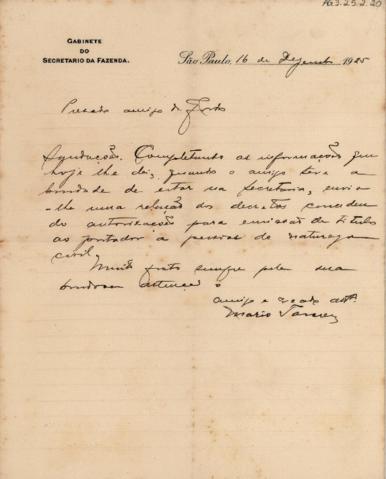 AG3.25.2.20
GABINETE
DO
SECRETARIO DA FAZENDA.
São Paulo, 16 de Dezembro 1925
Prezado amigo
Saudações. Completando as informações que
hoje lhe dei, quando o amigo teve a
bondade de estar na Secretaria, envio
-lhe uma relação dos decretos conceden
do autorisações para emissão de titulos
ao portador a pessoas de natureza
civil.
Muito grato sempre pela sua
bondosa attenção
amigo e
Mario Tavares